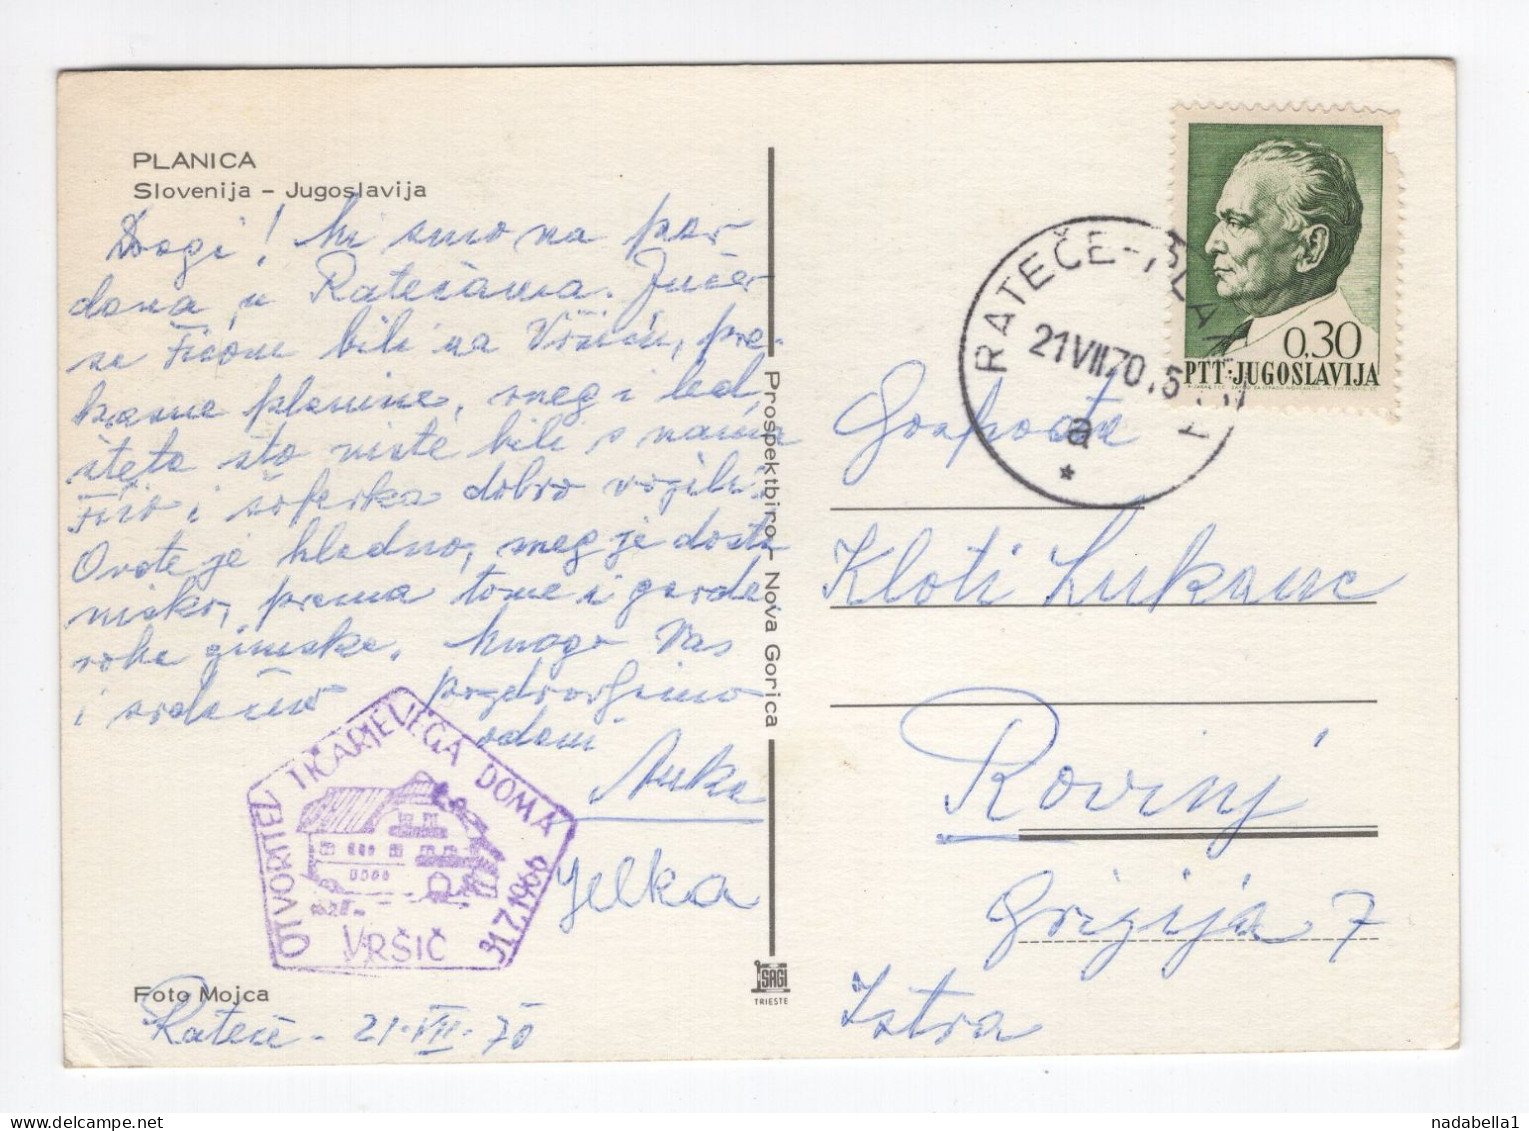 PLANICA
Slovenija - Jugoslavija
Dragi! Mi smo na par
dana u Ratečama. Jučer
sa Fićom bili na Vršiću, pre-
krasne planine, sneg i led,
šteta što niste bili s nama
Fićo i šoferka dobro vozili.
Ovde je hladno, sneg je dosta
nisko, prema tome i garde
roba zimska. Mnogo Vas
i srdačno pozdravljamo
odani
Anka
Jelka
OTVORITEV TIČARJEVEGA DOMA
31.7.1966
VRŠIČ
Foto Mojca
Rateče - 21-VII-70
Prospektbiro - Nova Gorica
SAGI
TRIESTE
RATEČE-PLANICA
21VII70.5
a
0,30
PTT·JUGOSLAVIJA
Gospođa
Kloti Lukanc
Rovinj
Grizija 7
Istra
nadabella1